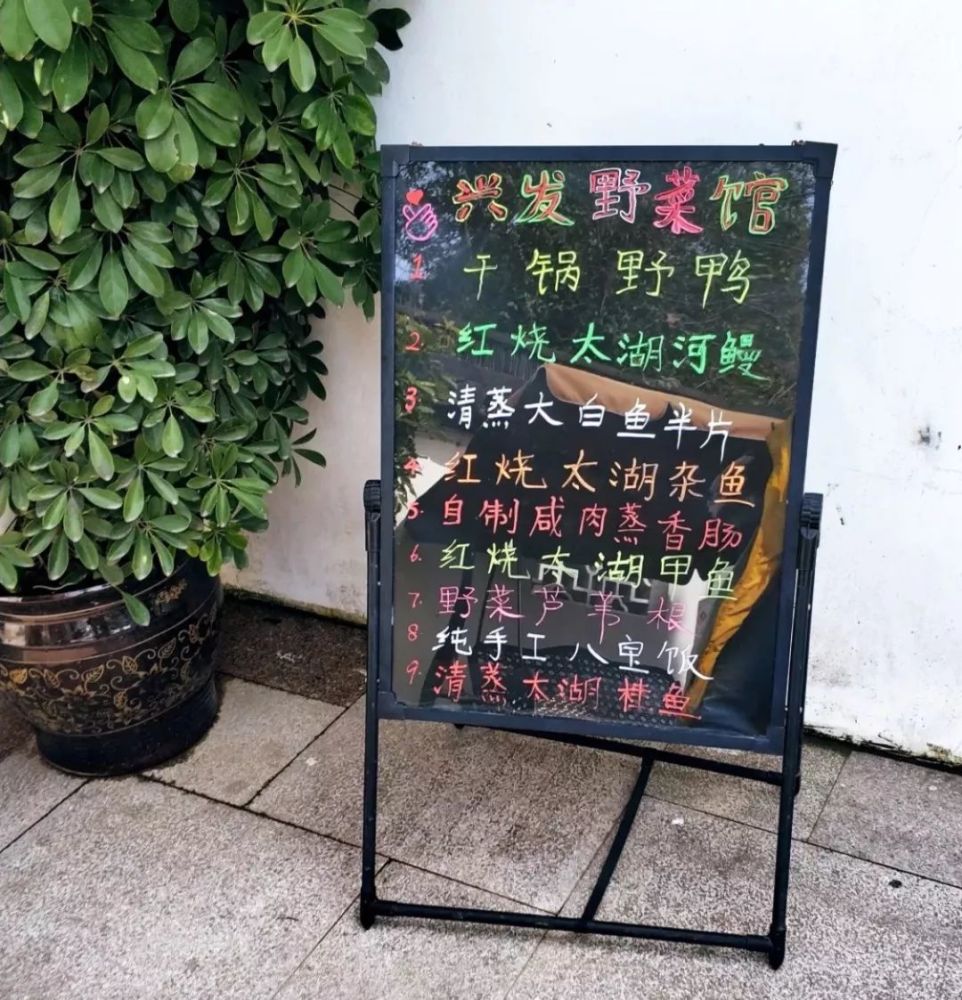 兴发野菜馆
1. 干锅野鸭
2. 红烧太湖河鳗
3 清蒸大白鱼半片
4. 红烧太湖杂鱼
5. 自制咸肉蒸香肠
6. 红烧太湖甲鱼
7. 野菜芦羊根
8 纯手工八宝饭
9. 清蒸太湖桂鱼